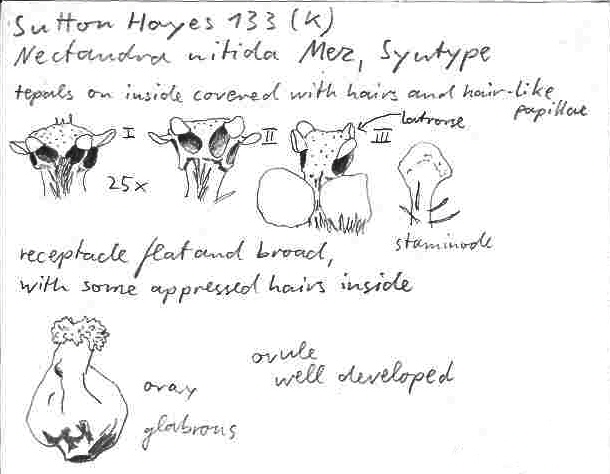 Sutton Hayes 133 (K)
Nectandra nitida Mez, Syntype
tepals on inside covered with hairs and hair-like
papillae
latrorse
I II III
25x
staminode
receptacle flat and broad,
with some appressed hairs inside
ovule
well developed
ovay
glabrous